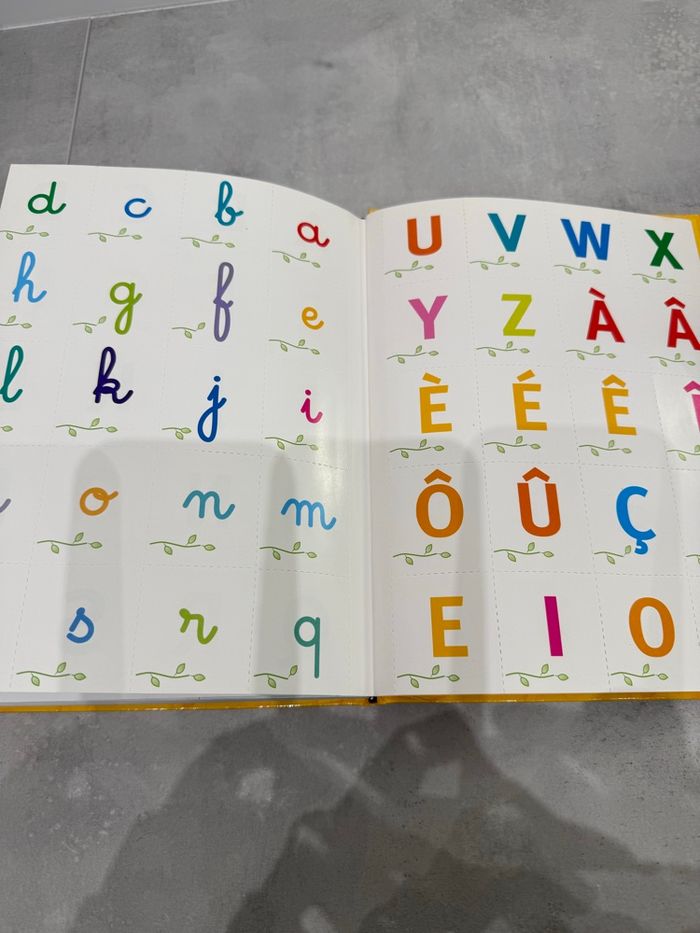 d c b a
h g f e
l k j i
o n m
s r q
U V W X
Y Z À Â
È É Ê Î
Ô Û Ç
E I O